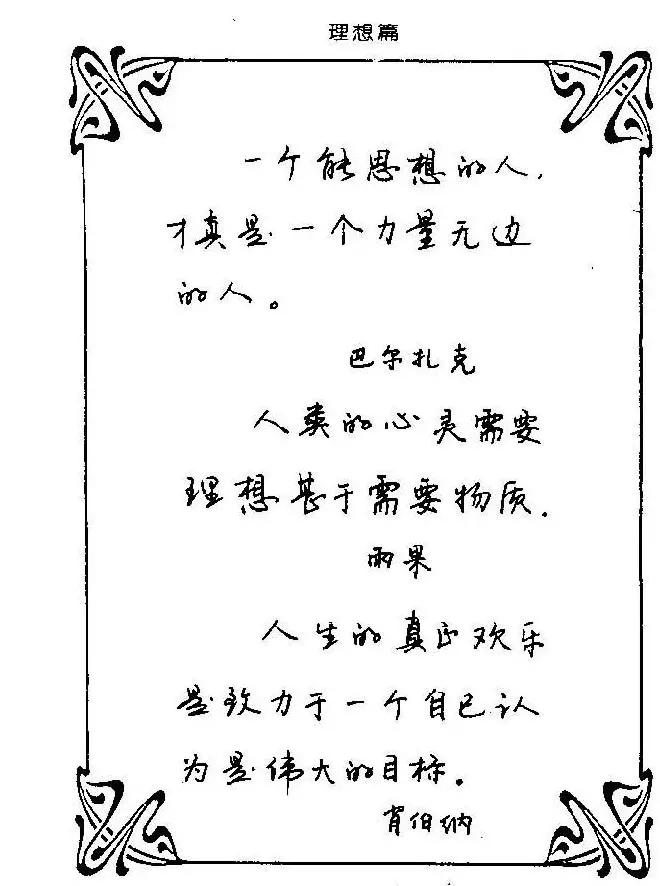 理想篇
一个能思想的人，
才真是一个力量无边
的人。
巴尔扎克
人类的心灵需要
理想甚于需要物质.
雨果
人生的真正欢乐
是致力于一个自己认
为是伟大的目标。
肖伯纳